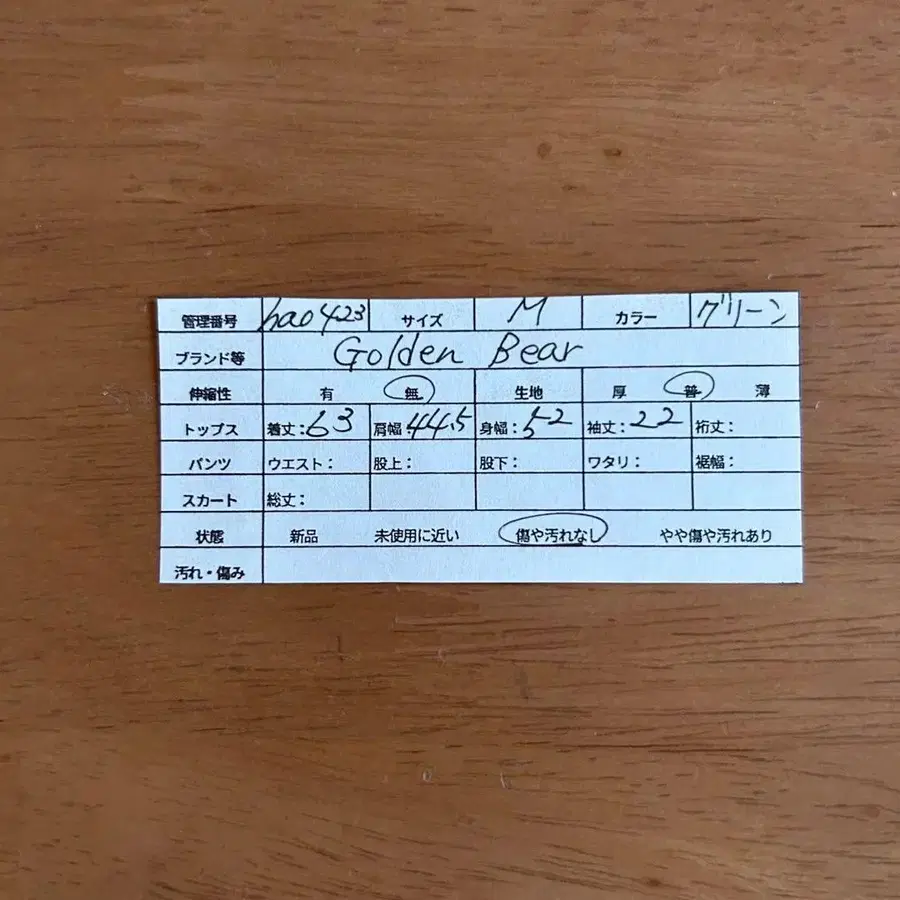 管理番号 hao423 サイズ M カラー グリーン
ブランド等 Golden Bear
伸縮性 有 無 生地 厚 普 薄
トップス 着丈:63 肩幅:44.5 身幅:52 袖丈:22 裄丈:
パンツ ウエスト: 股上: 股下: ワタリ: 裾幅:
スカート 総丈:
状態 新品 未使用に近い 傷や汚れなし やや傷や汚れあり
汚れ・傷み